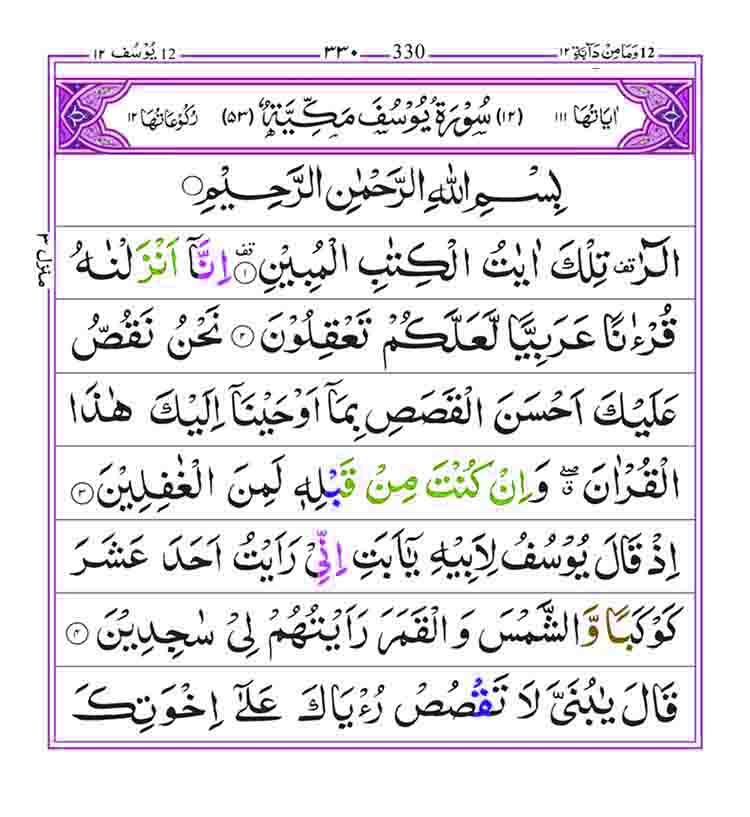 12 وَمَا مِنْ دَآبَّةٍ ١٢ 330 ٣٣٠ 12 يُوْسُف ١٢
اٰيَاتُهَا ١١١ (١٢) سُوْرَةُ يُوْسُفَ مَكِّيَّةٌ (٥٣) رُكُوْعَاتُهَا ١٢
بِسْمِ اللّٰهِ الرَّحْمٰنِ الرَّحِيْمِ
الٓرٰ ۫ تِلْكَ اٰيٰتُ الْكِتٰبِ الْمُبِيْنِ ۫ ﴿١﴾ اِنَّاۤ اَنْزَلْنٰهُ
قُرْءٰنًا عَرَبِيًّا لَّعَلَّكُمْ تَعْقِلُوْنَ ﴿٢﴾ نَحْنُ نَقُصُّ
عَلَيْكَ اَحْسَنَ الْقَصَصِ بِمَاۤ اَوْحَيْنَاۤ اِلَيْكَ هٰذَا
الْقُرْاٰنَ ۖ وَاِنْ كُنْتَ مِنْ قَبْلِهٖ لَمِنَ الْغٰفِلِيْنَ ﴿٣﴾
اِذْ قَالَ يُوْسُفُ لِاَبِيْهِ يٰۤاَبَتِ اِنِّيْ رَاَيْتُ اَحَدَ عَشَرَ
كَوْكَبًا وَّالشَّمْسَ وَالْقَمَرَ رَاَيْتُهُمْ لِيْ سٰجِدِيْنَ ﴿٤﴾
قَالَ يٰبُنَيَّ لَا تَقْصُصْ رُءْيَاكَ عَلٰۤى اِخْوَتِكَ
منزل ٣